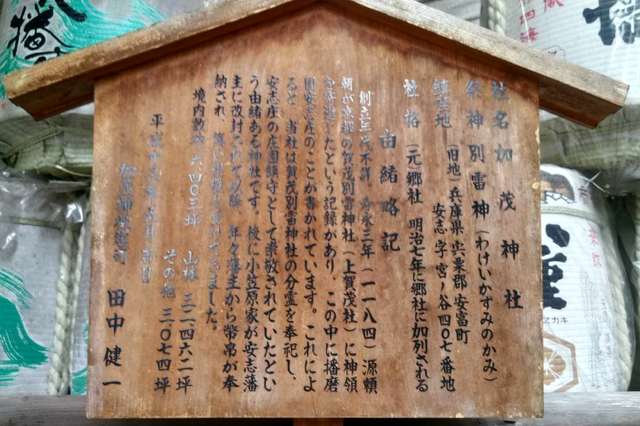 社名 加茂神社
祭神 別雷神（わけいかずみのかみ）
鎮座地（旧地）兵庫県宍粟郡安富町
安志字宮ノ谷四〇七番地
社格（元）郷社 明治七年に郷社に加列される
由緒略記
創立年代不詳、寿永三年（一一八四）源頼
朝が京都の賀茂別雷神社（上賀茂社）に神領
を寄進したという記録があり、この中に播磨
国安志庄のことが書かれています。これによ
ると、当社は賀茂別雷神社の分霊を奉祀し、
安志庄の庄園鎮守として崇敬されていたとい
う由緒ある神社です。後に小笠原家が安志藩
主に改封されて以降、年々藩主から幣帛が奉
納され
境内敷地 六四〇三坪 山林 三二四六二坪
その他 三〇七四坪
平成十
田中健一